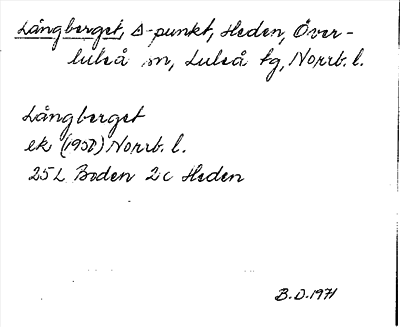 Långberget, Δ-punkt, Heden, Över-
luleå sn, Luleå tg, Norrb. l.
Långberget
ek (1950) Norrb. l.
25 L Boden 2 c Heden
B. D. 1971